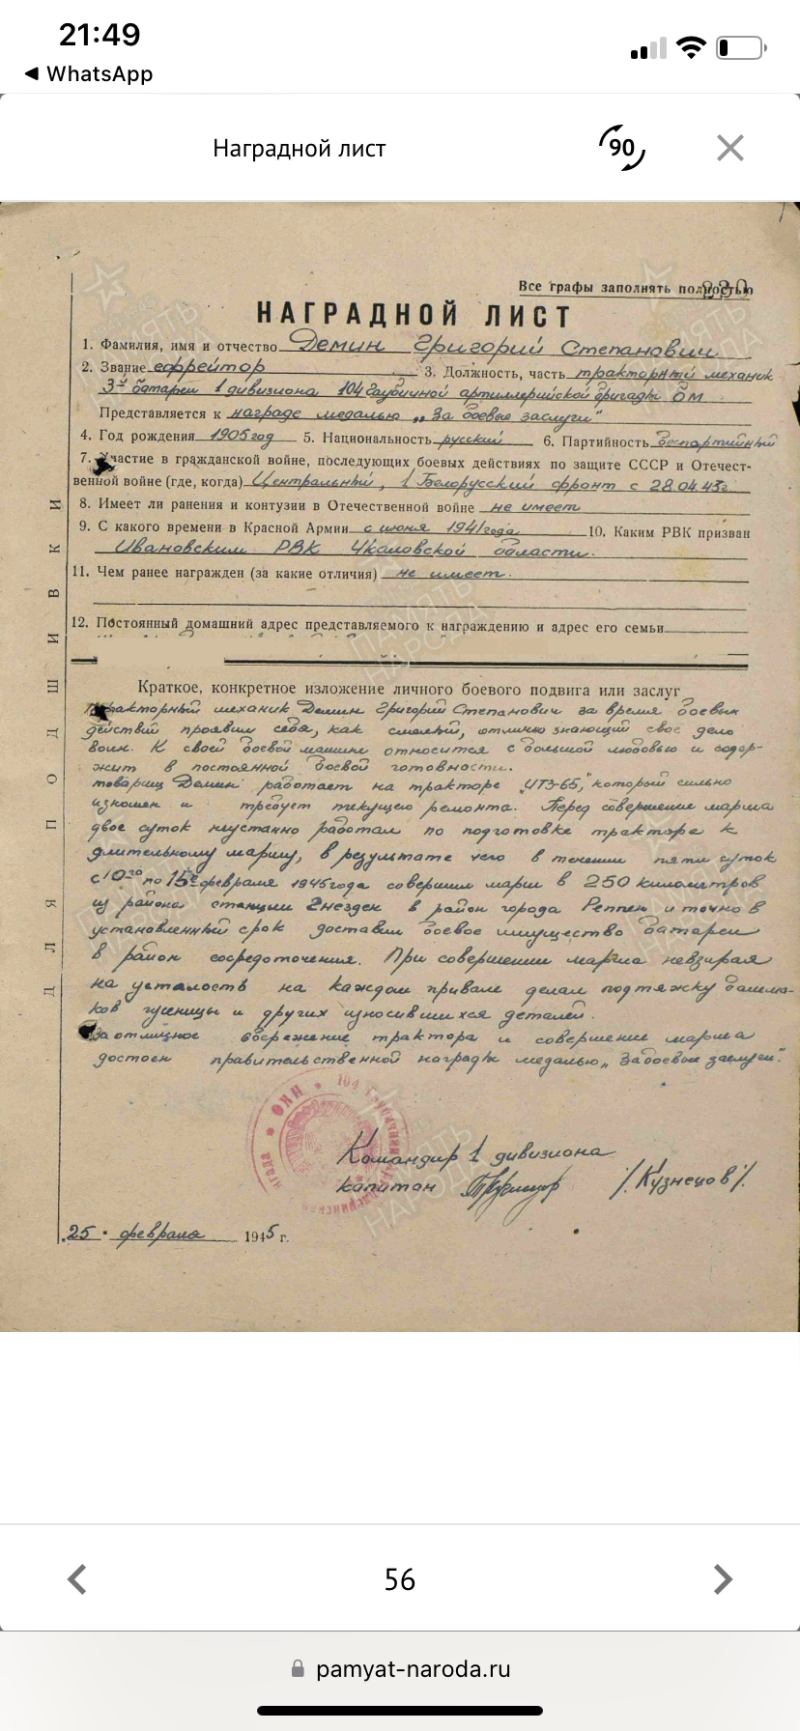 21:49
◀ WhatsApp
Наградной лист
90
Все графы заполнять полностью
НАГРАДНОЙ ЛИСТ
1. Фамилия, имя и отчество Демин Григорий Степанович
2. Звание ефрейтор 3. Должность, часть тракторный механик
3й батареи 1 дивизиона 104 Гаубичной артиллерийской бригады БМ
Представляется к награде медалью „За боевые заслуги"
4. Год рождения 1905 год 5. Национальность русский 6. Партийность беспартийный
7. Участие в гражданской войне, последующих боевых действиях по защите СССР и Отечест-
венной войне (где, когда) Центральный, 1 Белорусский фронт с 28.04.43г
8. Имеет ли ранения и контузии в Отечественной войне не имеет
9. С какого времени в Красной Армии с июня 1941 года 10. Каким РВК призван
Ивановским РВК Чкаловской области.
11. Чем ранее награжден (за какие отличия) не имеет.
12. Постоянный домашний адрес представляемого к награждению и адрес его семьи
Краткое, конкретное изложение личного боевого подвига или заслуг
Тракторный механик Демин Григорий Степанович за время боевых
действий проявил себя, как смелый, отлично знающий свое дело
воин. К своей боевой машине относится с большой любовью и содер-
жит в постоянной боевой готовности.
товарищ Демин работает на тракторе „ЧТЗ-65," который сильно
изношен и требует текущего ремонта. Перед совершением марша
двое суток неустанно работал по подготовке трактора к
длительному маршу, в результате чего в течении пяти суток
с 10го по 15е февраля 1945 года совершил марш в 250 километров
из района станции Гнездек в район города Реппен и точно в
установленный срок доставил боевое имущество батареи
в район сосредоточения. При совершении марша невзирая
на усталость на каждом привале делал подтяжку башма-
ков гусеницы и других износившихся деталей.
За отличное сбережение трактора и совершение марша
достоен правительственной награды медалью „За боевые заслуги".
НКО * 104
Командир 1 дивизиона
капитан /Кузнецов/.
25 • февраля 1945 г.
ДЛЯ ПОДШИВКИ
ПАМЯТЬ
НАРОДА
56
pamyat-naroda.ru